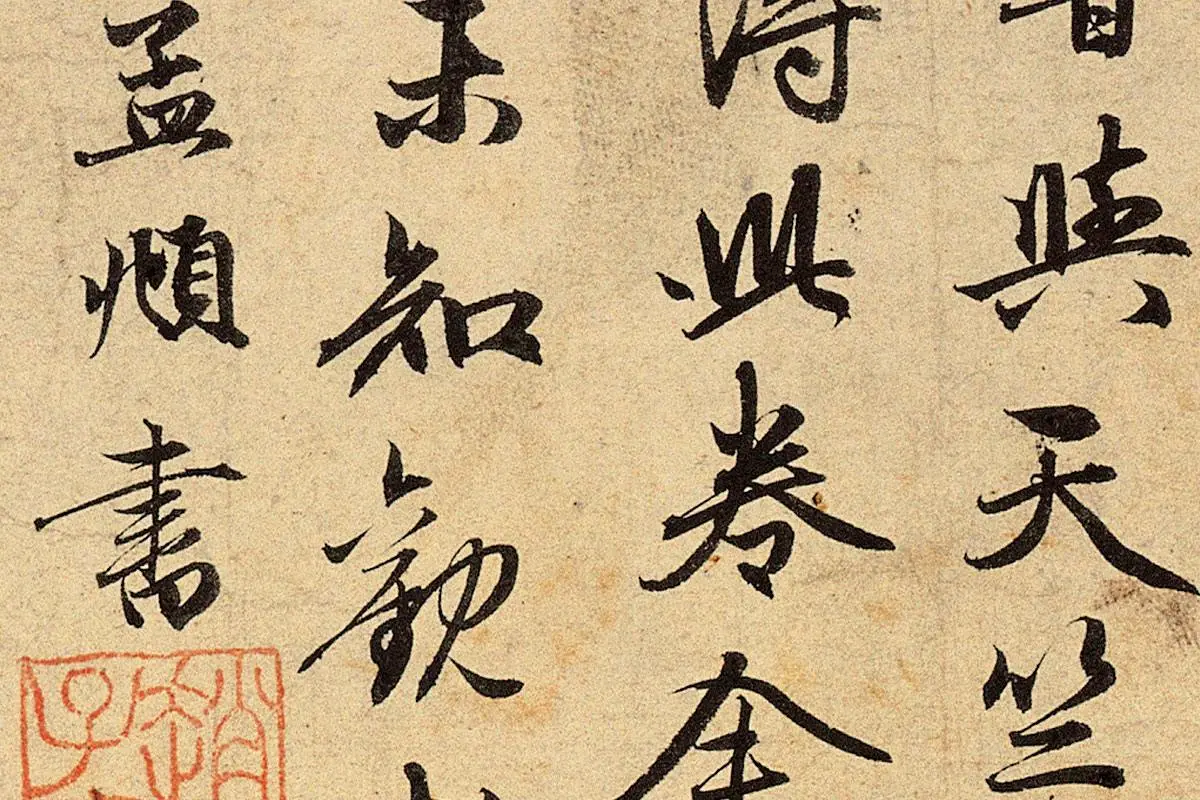 與天竺
得此卷全
未知觀
孟頫書
趙子